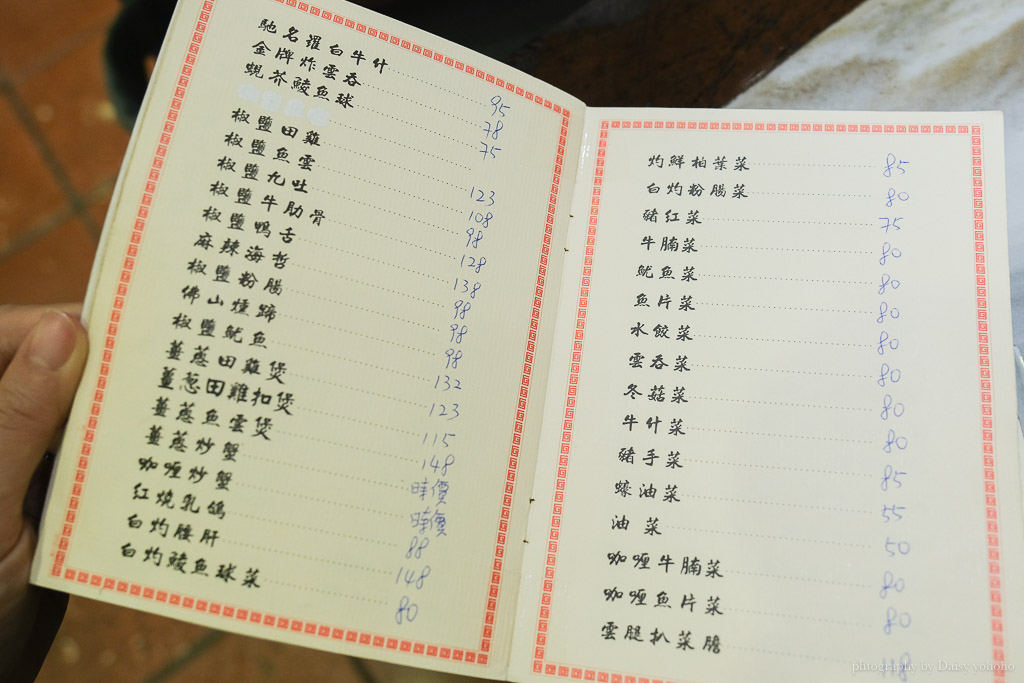 馳名蘿白牛什 95
金牌炸雲吞 78
蜆芥鯪魚球 75
椒鹽田雞 123
椒鹽魚雲 108
椒鹽九吐 98
椒鹽牛肋骨 128
椒鹽鴨舌 138
麻辣海哲 98
椒鹽粉腸 98
佛山燻蹄 98
椒鹽魷魚 132
薑蔥田雞煲 123
薑葱田雞扣煲 115
薑蔥魚雲煲 148
薑蔥炒蟹 時價
咖喱炒蟹 時價
紅燒乳鴿 88
白灼腰肝 148
白灼鯪魚球菜 80
灼鮮柏葉菜 85
白灼粉腸菜 80
豬紅菜 75
牛腩菜 80
魷魚菜 80
魚片菜 80
水餃菜 80
雲吞菜 80
冬菇菜 80
牛什菜 80
豬手菜 85
蠔油菜 55
油菜 50
咖喱牛腩菜 80
咖喱魚片菜 80
雲腿扒菜膽 118
photography by Daisy yohoho